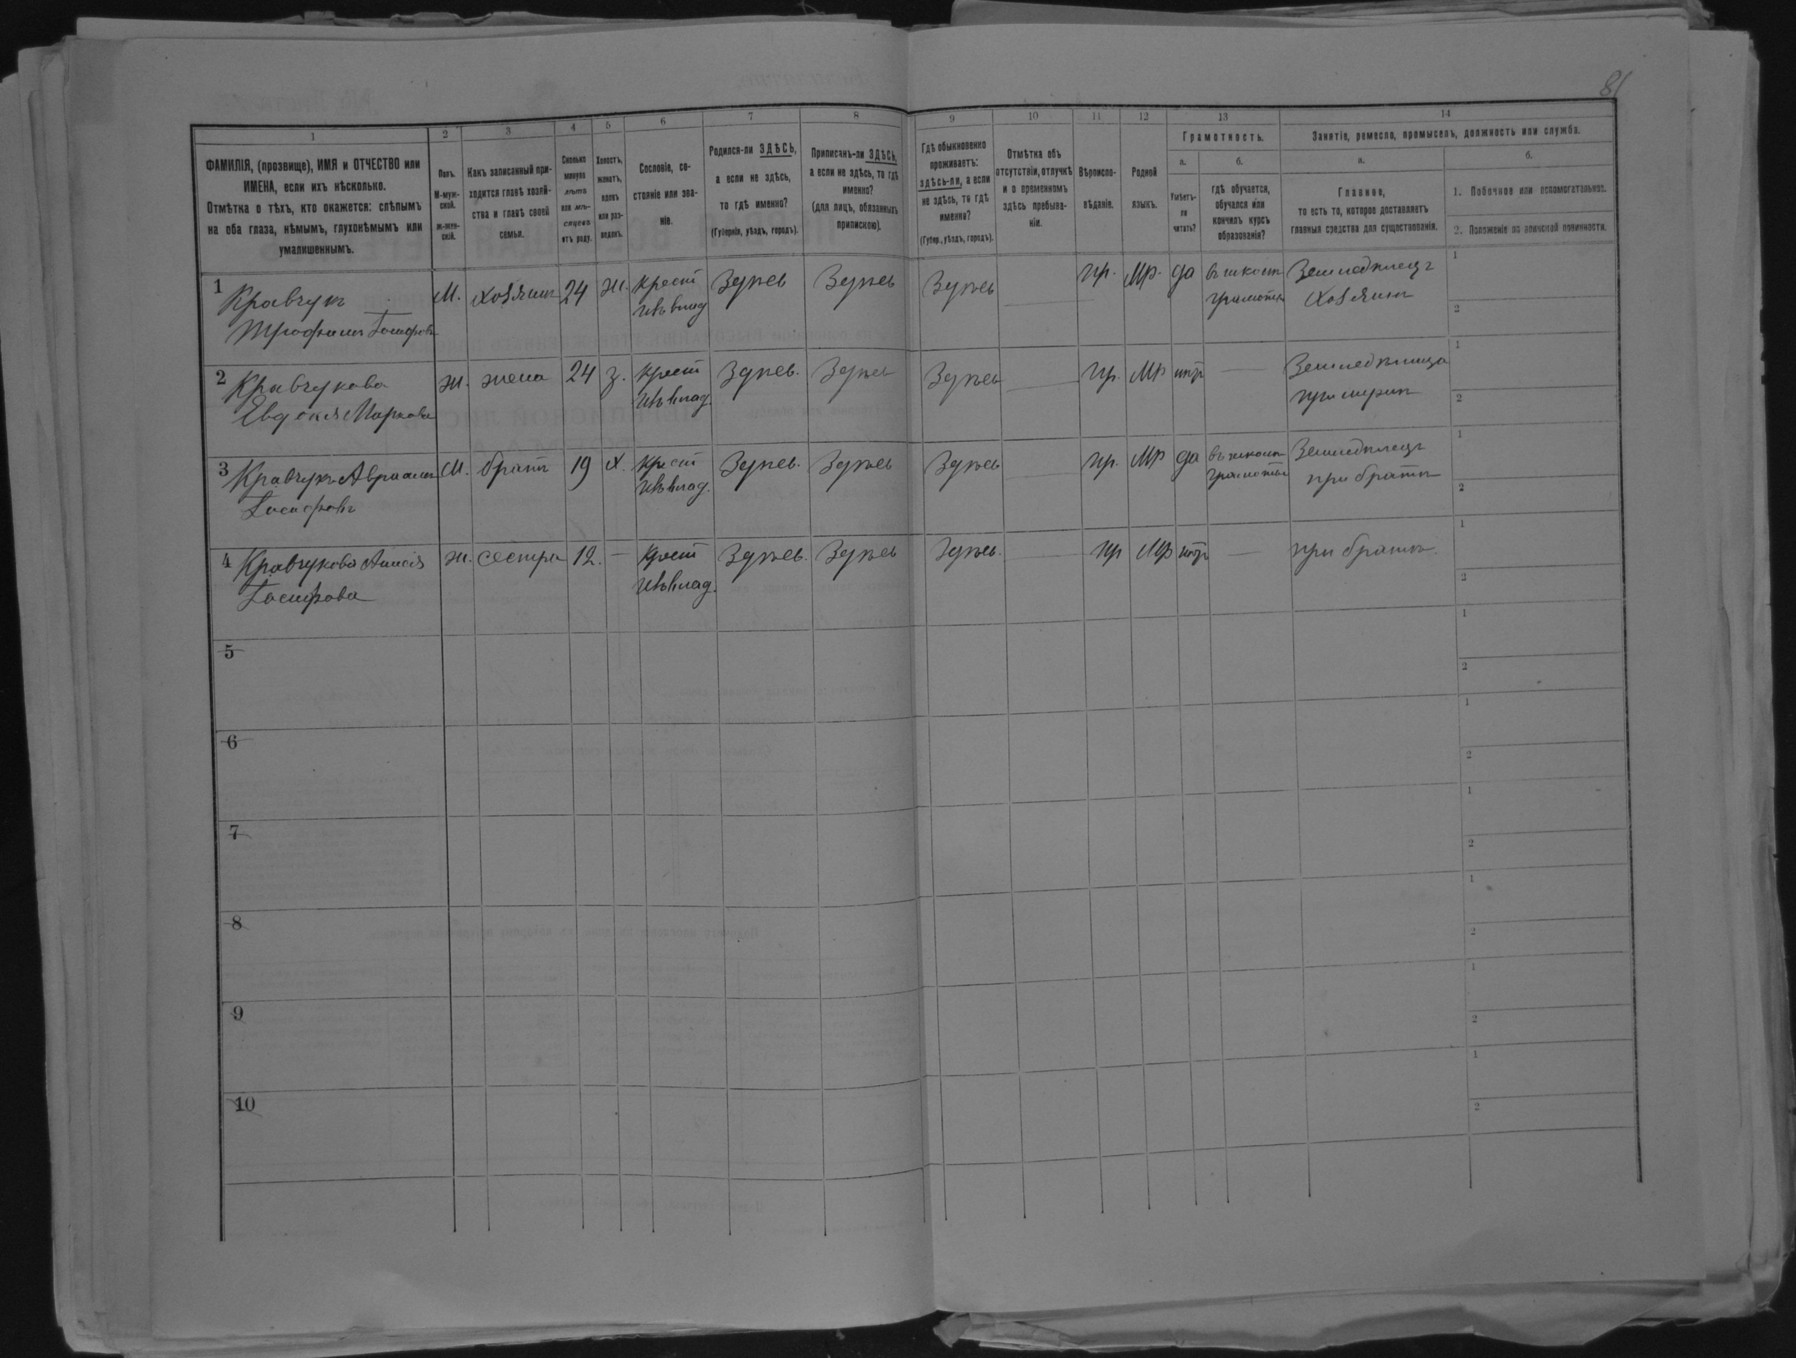 81
1 2 3 4 5 6 7 8 9 10 11 12 13 14
ФАМИЛІЯ, (прозвище), ИМЯ и ОТЧЕСТВО или
ИМЕНА, если ихъ нѣсколько.
Отмѣтка о тѣхъ, кто окажется: слѣпымъ
на оба глаза, нѣмымъ, глухонѣмымъ или
умалишеннымъ.
Полъ.
М-муж-
ской.
ж-жен-
скій.
Какъ записанный при-
ходится главѣ хозяй-
ства и главѣ своей
семьи.
Сколько
минуло
лѣтъ
или мѣ-
сяцевъ
отъ роду.
Холостъ,
женатъ,
вдовъ
или раз-
веденъ.
Сословіе, со-
стояніе или зва-
ніе.
Родился-ли ЗДѢСЬ,
а если не здѣсь,
то гдѣ именно?
(Губернія, уѣздъ, городъ).
Приписанъ-ли ЗДѢСЬ,
а если не здѣсь, то гдѣ
именно?
(для лицъ, обязанныхъ
припискою).
Гдѣ обыкновенно
проживаетъ:
здѣсь-ли, а если
не здѣсь, то гдѣ
именно?
(Губер., уѣздъ, городъ).
Отмѣтка объ
отсутствіи, отлучкѣ
и о временномъ
здѣсь пребыва-
ніи.
Вѣроиспо-
вѣданіе.
Родной
языкъ.
Грамотность.
а.
Умѣетъ-
ли
читать?
б.
гдѣ обучается,
обучался или
кончилъ курсъ
образованія?
Занятіе, ремесло, промыселъ, должность или служба.
а.
Главное,
то есть то, которое доставляетъ
главныя средства для существованія.
б.
1. Побочное или вспомогательное.
2. Положеніе по воинской повинности.
1 Кравчукъ М. хозяинъ 24 ж. крест Здѣсь Здѣсь Здѣсь пр. Мр. да въ школѣ Земледѣлецъ 1
Трофимъ Іосифовъ изъ влад. грамоты Хозяинъ 2
2 Кравчукова ж. жена 24 з. крест Здѣсь Здѣсь Здѣсь пр. Мр нѣтъ Земледѣлица 1
Евдокія Маркова изъ влад. при мужѣ 2
3 Кравчукъ Авраамъ М. братъ 19 х. крест Здѣсь Здѣсь Здѣсь пр. Мр да въ школѣ Земледѣлецъ 1
Іосифовъ изъ влад. грамоты при братѣ 2
4 Кравчукова Анисія ж. сестра 12. крест Здѣсь Здѣсь Здѣсь пр Мр нѣтъ при братѣ. 1
Іосифова изъ влад. 2
5 1
2
6 1
2
7 1
2
8 1
2
9 1
2
10 1
2